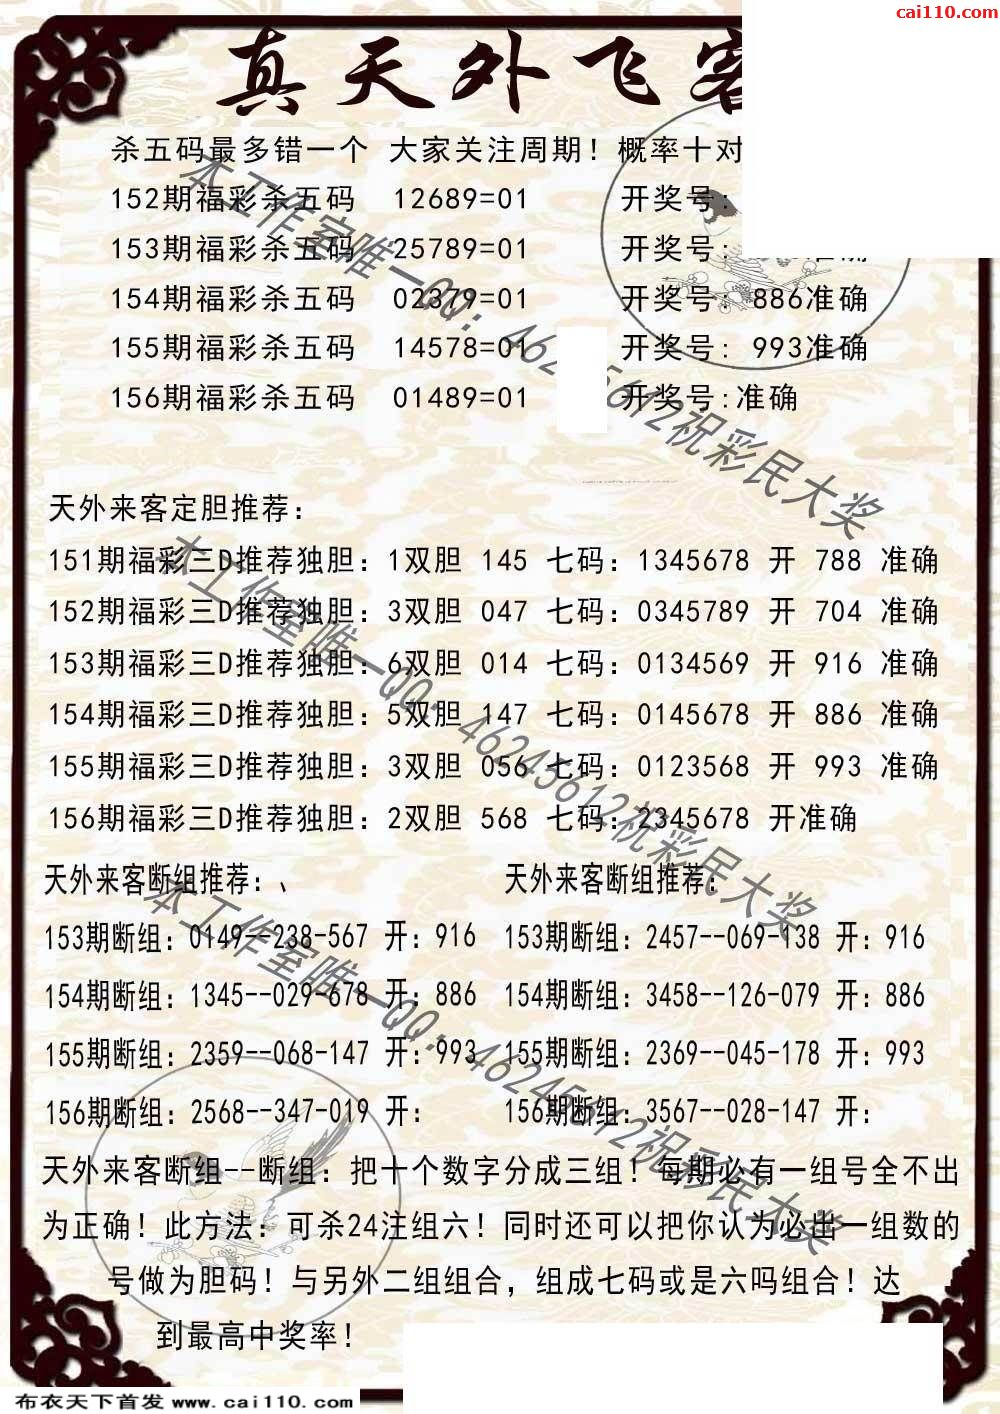 cai110.com
真天外飞客
杀五码最多错一个 大家关注周期！概率十对
152期福彩杀五码 12689=01 开奖号:
153期福彩杀五码 25789=01 开奖号: 准确
154期福彩杀五码 02379=01 开奖号: 886准确
155期福彩杀五码 14578=01 开奖号: 993准确
156期福彩杀五码 01489=01 开奖号:准确
本工作室唯一QQ: 46245612祝彩民大奖
天外来客定胆推荐:
151期福彩三D推荐独胆: 1双胆 145 七码: 1345678 开 788 准确
152期福彩三D推荐独胆: 3双胆 047 七码: 0345789 开 704 准确
153期福彩三D推荐独胆: 6双胆 014 七码: 0134569 开 916 准确
154期福彩三D推荐独胆: 5双胆 147 七码: 0145678 开 886 准确
155期福彩三D推荐独胆: 3双胆 056 七码: 0123568 开 993 准确
156期福彩三D推荐独胆: 2双胆 568 七码: 2345678 开准确
本工作室唯一QQ: 46245612祝彩民大奖
天外来客断组推荐:、 天外来客断组推荐:
153期断组: 0149--238-567 开: 916 153期断组: 2457--069-138 开: 916
154期断组: 1345--029-678 开: 886 154期断组: 3458--126-079 开: 886
155期断组: 2359--068-147 开: 993 155期断组: 2369--045-178 开: 993
156期断组: 2568--347-019 开: 156期断组: 3567--028-147 开:
本工作室唯一QQ: 46245612祝彩民大奖
天外来客断组--断组: 把十个数字分成三组！每期必有一组号全不出
为正确！此方法: 可杀24注组六！同时还可以把你认为必出一组数的
号做为胆码！与另外二组组合，组成七码或是六吗组合！达
到最高中奖率！
布衣天下首发 www.cai110.com